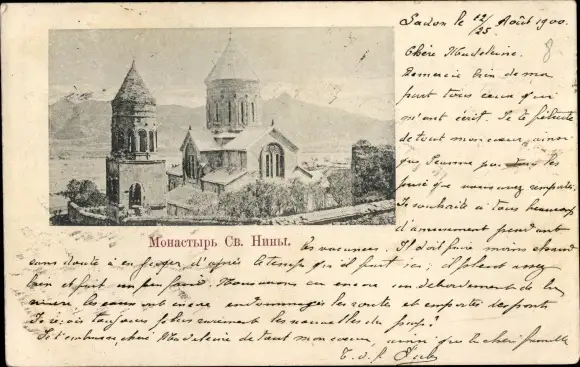 Sadon le 12/25 Août 1900.
Chère Madeleine.
Remercie bien de ma
part tous ceux qui
m'ont écrit. Je te félicite
de tout mon cœur, ainsi
que Jeanne les
prix que vous avez remportés.
Je souhaite à tous beaucoup
d'amusement pendant
les vacances. Il doit faire moins chaud
sans doute à en juger d'après le temps qu'il fait ici; il pleut assez
bien et fait un peu froid. Nous avons eu encore un débordement de la
rivière les eaux ont encore endommagé la route et emporté des ponts
Je reçois toujours plus rarement les nouvelles du
Je t'embrasse, chère Madeleine de tout mon cœur, ainsi que la chère famille
Монастырь Св. Нины.